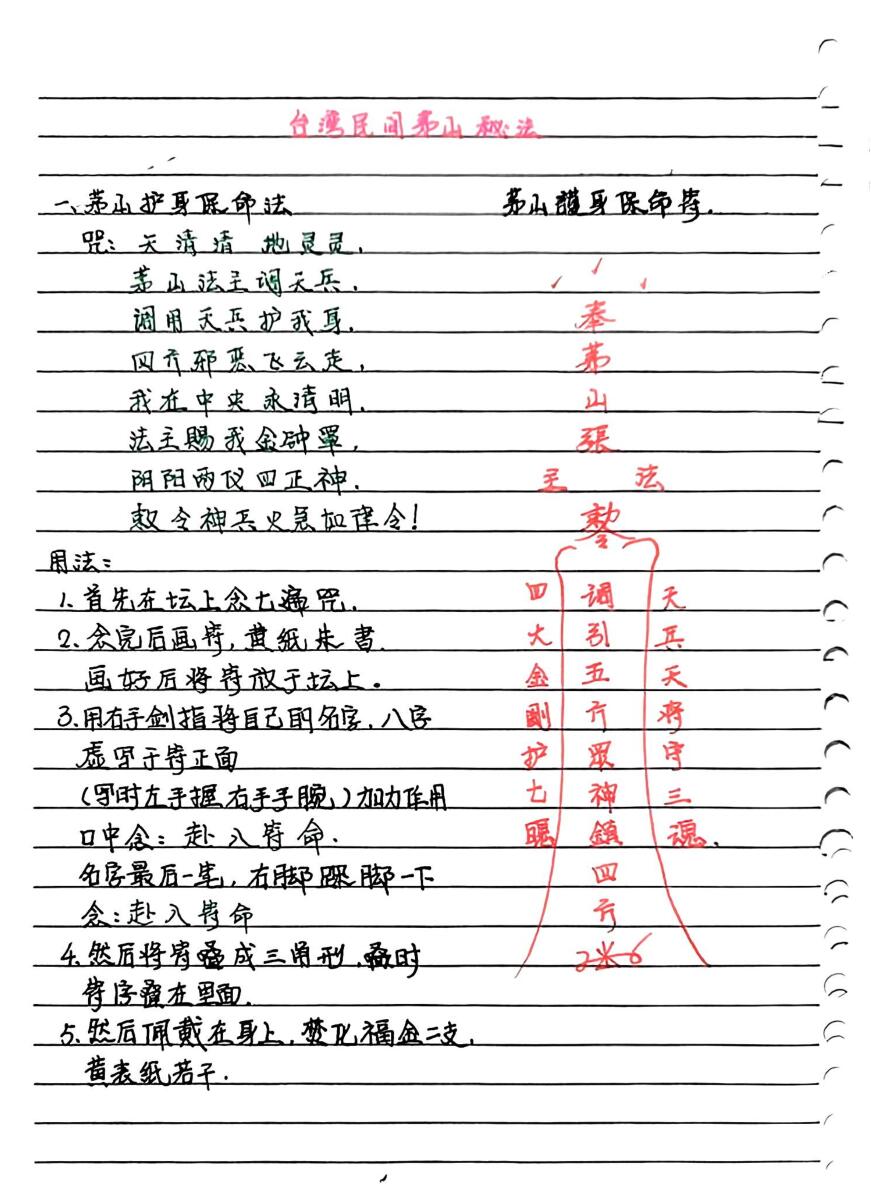 台湾民间茅山秘法
一、茅山护身保命法
咒：天清清 地灵灵，
茅山法主调天兵，
调用天兵护我身，
四方邪恶飞云走，
我在中央永清明，
法主賜我金钟罩，
阴阳两仪四正神，
敕令神兵火急如律令！
用法：
1. 首先在坛上念七遍咒，
2. 念完后画符，黄紙朱書
画好后将符放于坛上。
3. 用右手剑指将自己的名字，八字
虚写于符正面
（写时左手握右手手腕，）加力作用
口中念：赴入符命．
名字最后一笔，右脚踩脚一下
念：赴入符命
4. 然后将符叠成三角形，叠时
符字叠在里面．
5. 然后佩戴在身上，焚化福金二支，
黄表紙若干．
茅山護身保命符．
奉
茅
山
張
主 法
敕令
四 調 天
大 引 兵
金 五 天
剛 方 将
护 眾 守
七 神 三
魄 鎮 魂．
四
方